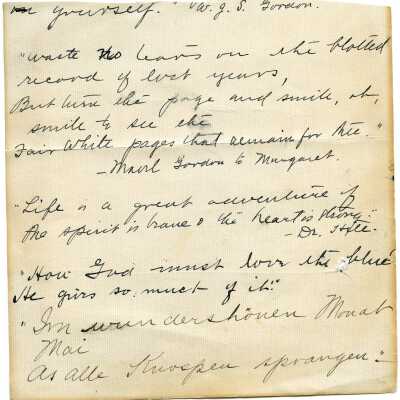 on yourself." W. G. S. Gordon.
"Waste no tears on the blotted
record of lost years,
But turn the page and smile, oh,
smile to see the
Fair White pages that remain for thee."
- Maorl Gordon to Margaret.
"Life is a great adventure if
the spirit is brave & the heart is strong."
- Dr.
"How God must love the blue
He gives so much of it!"
"Im wunderschönen Monat
Mai
As alle Knospen sprangen"-